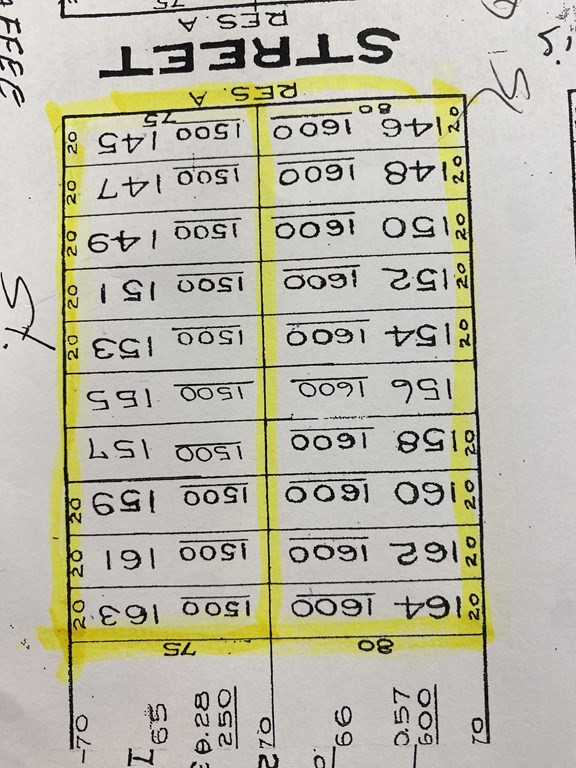 70
600
0.57
66
70
250
0.28
65
70
80 75
20 164 1600 1500 163 20
20 162 1600 1500 161 20
20 160 1600 1500 159 20
20 158 1600 1500 157
156 1600 1500 155
20 154 1600 1500 153 20
20 152 1600 1500 151 20
20 150 1600 1500 149 20
20 148 1600 1500 147 20
20 146 1600 1500 145 20
80 75
RES. A
STREET
RES. A
75